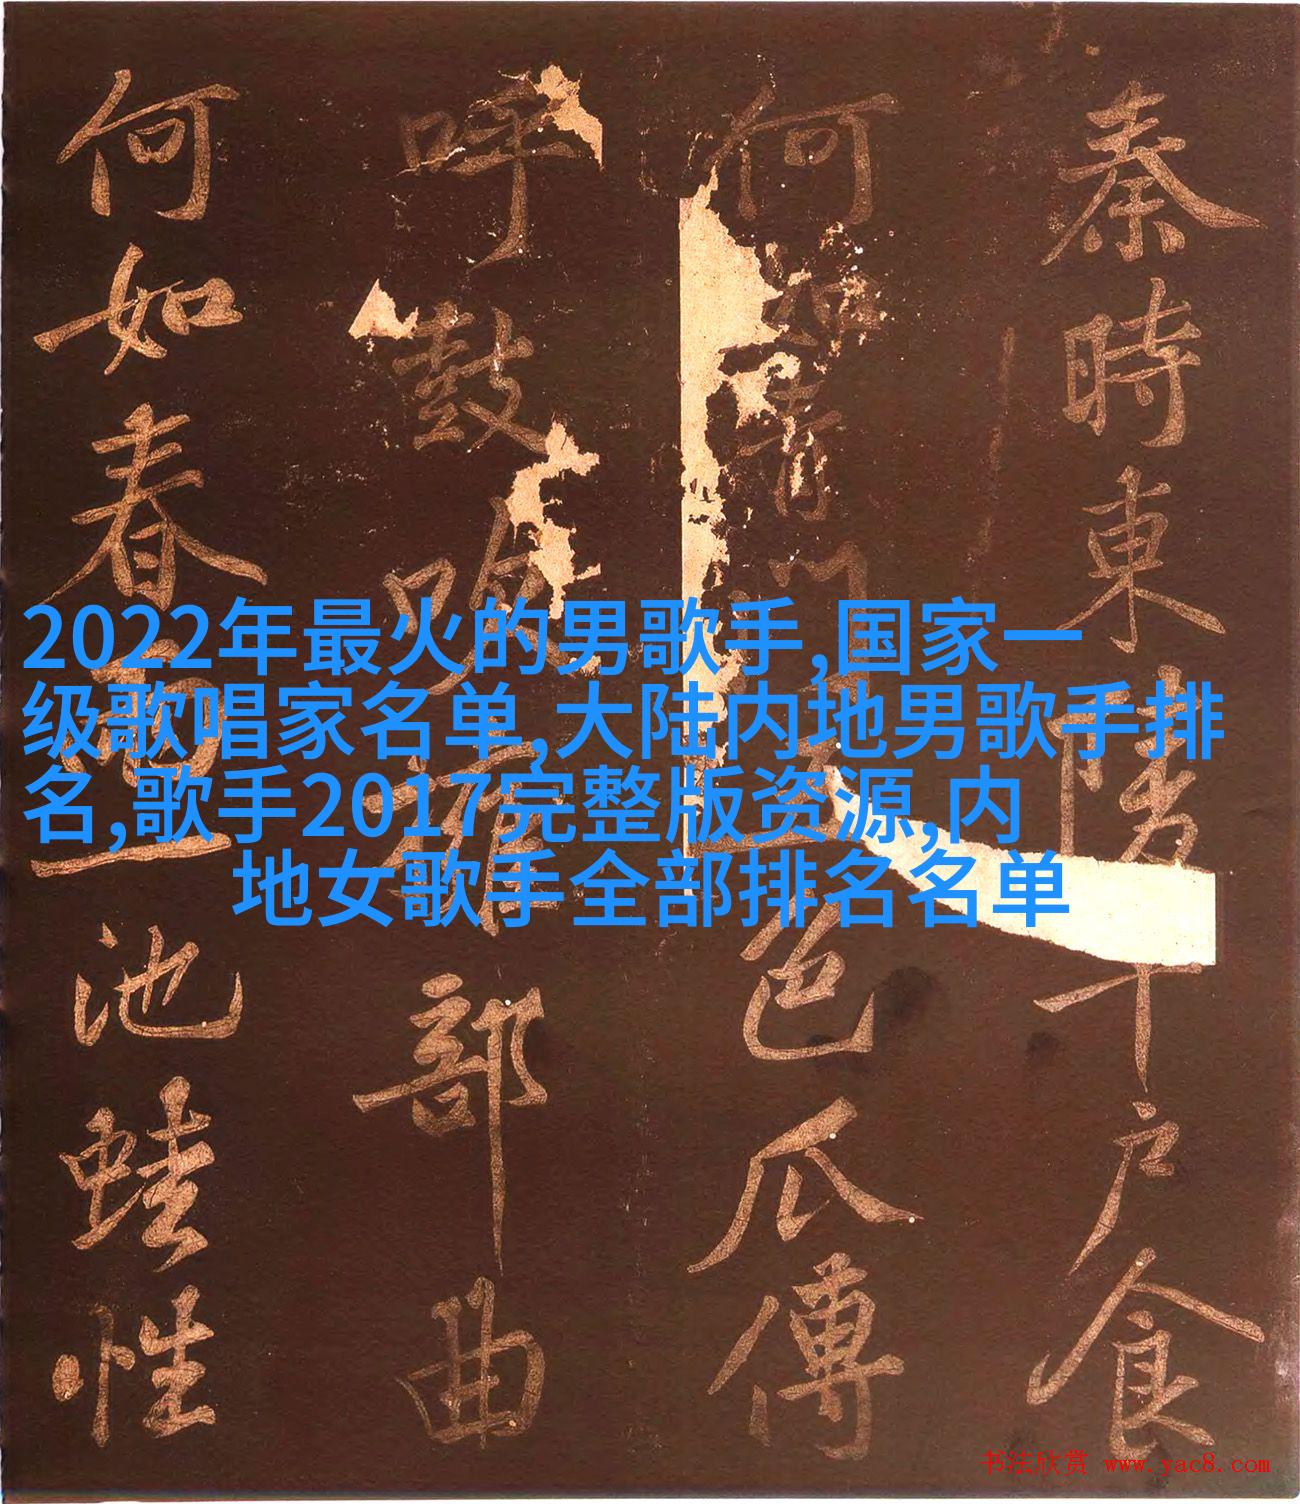 秦時東陵千戶食
何如青門五色瓜傅
呼鼓吹擁部曲
何如春畫池蛙性
2022年最火的男歌手,国家一
级歌唱家名单,大陆内地男歌手排
名,歌手2017完整版资源,内
地女歌手全部排名名单
书法欣赏 www.yac8.com